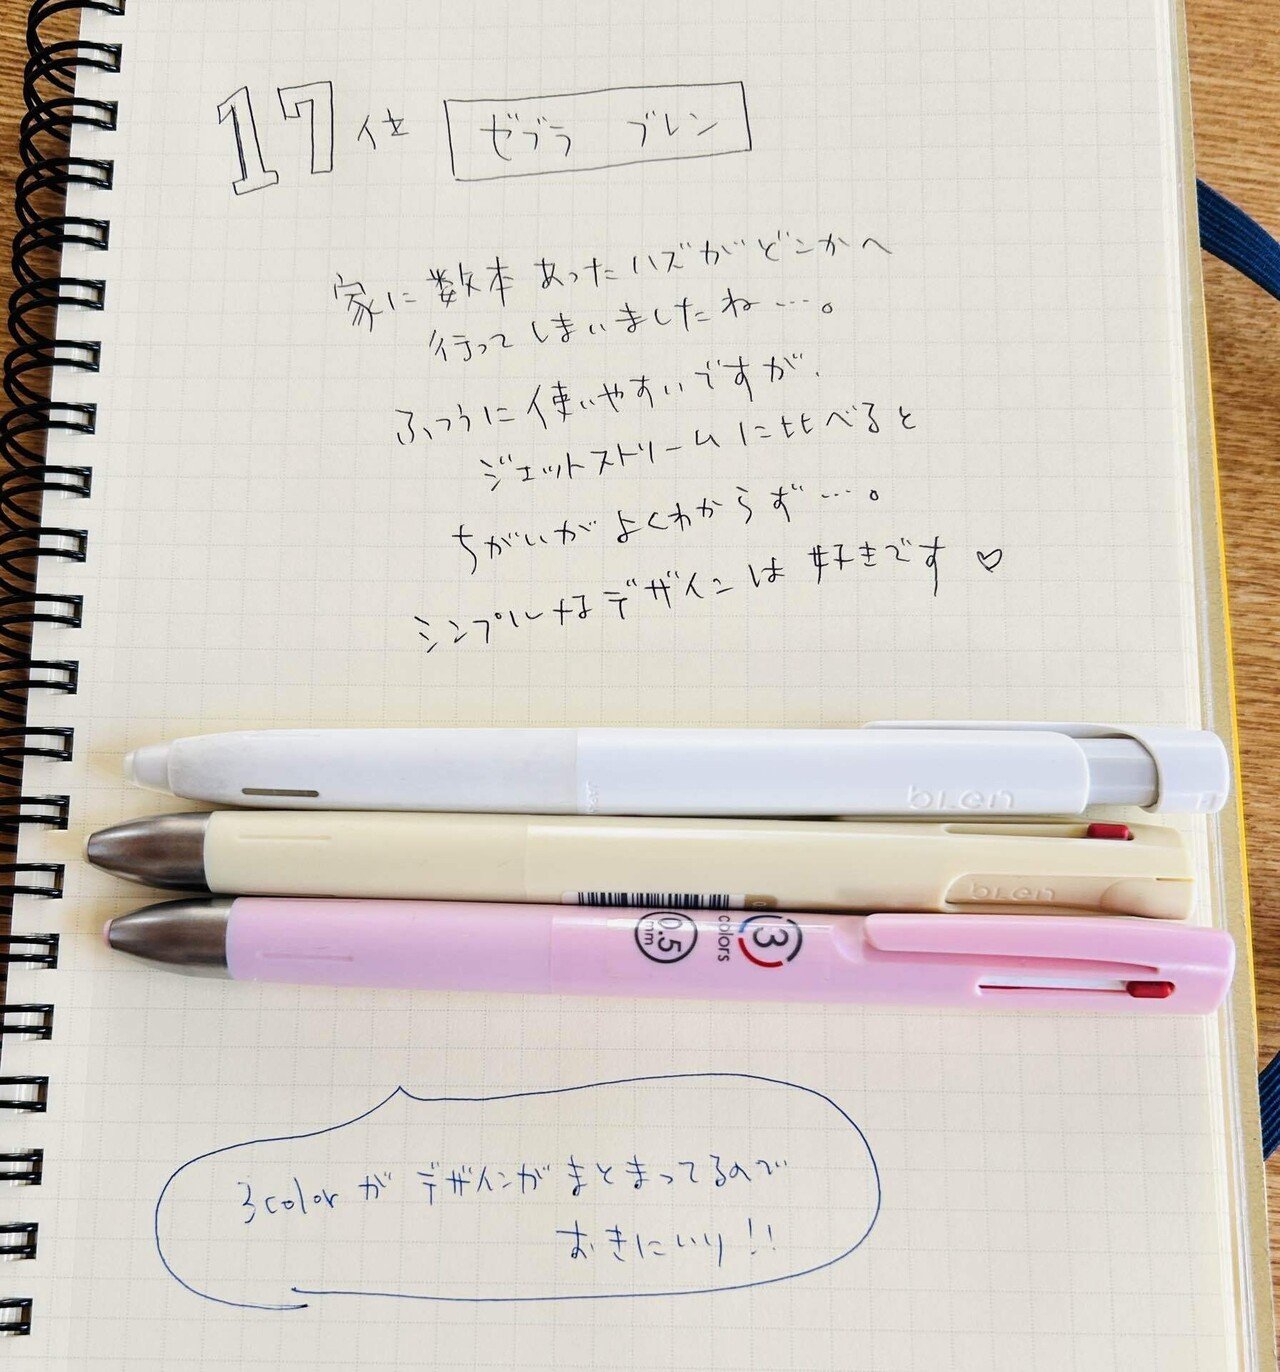 17位 ゼブラ ブレン
家に数本あったハズがどこかへ
行ってしまいましたね…。
ふつうに使いやすいですが、
ジェットストリームに比べると
ちがいがよくわからず…。
シンプルなデザインは好きです♡
bLen
bLen
3 colors 0.5 mm
3colorがデザインがまとまってるので
おきにいり!!